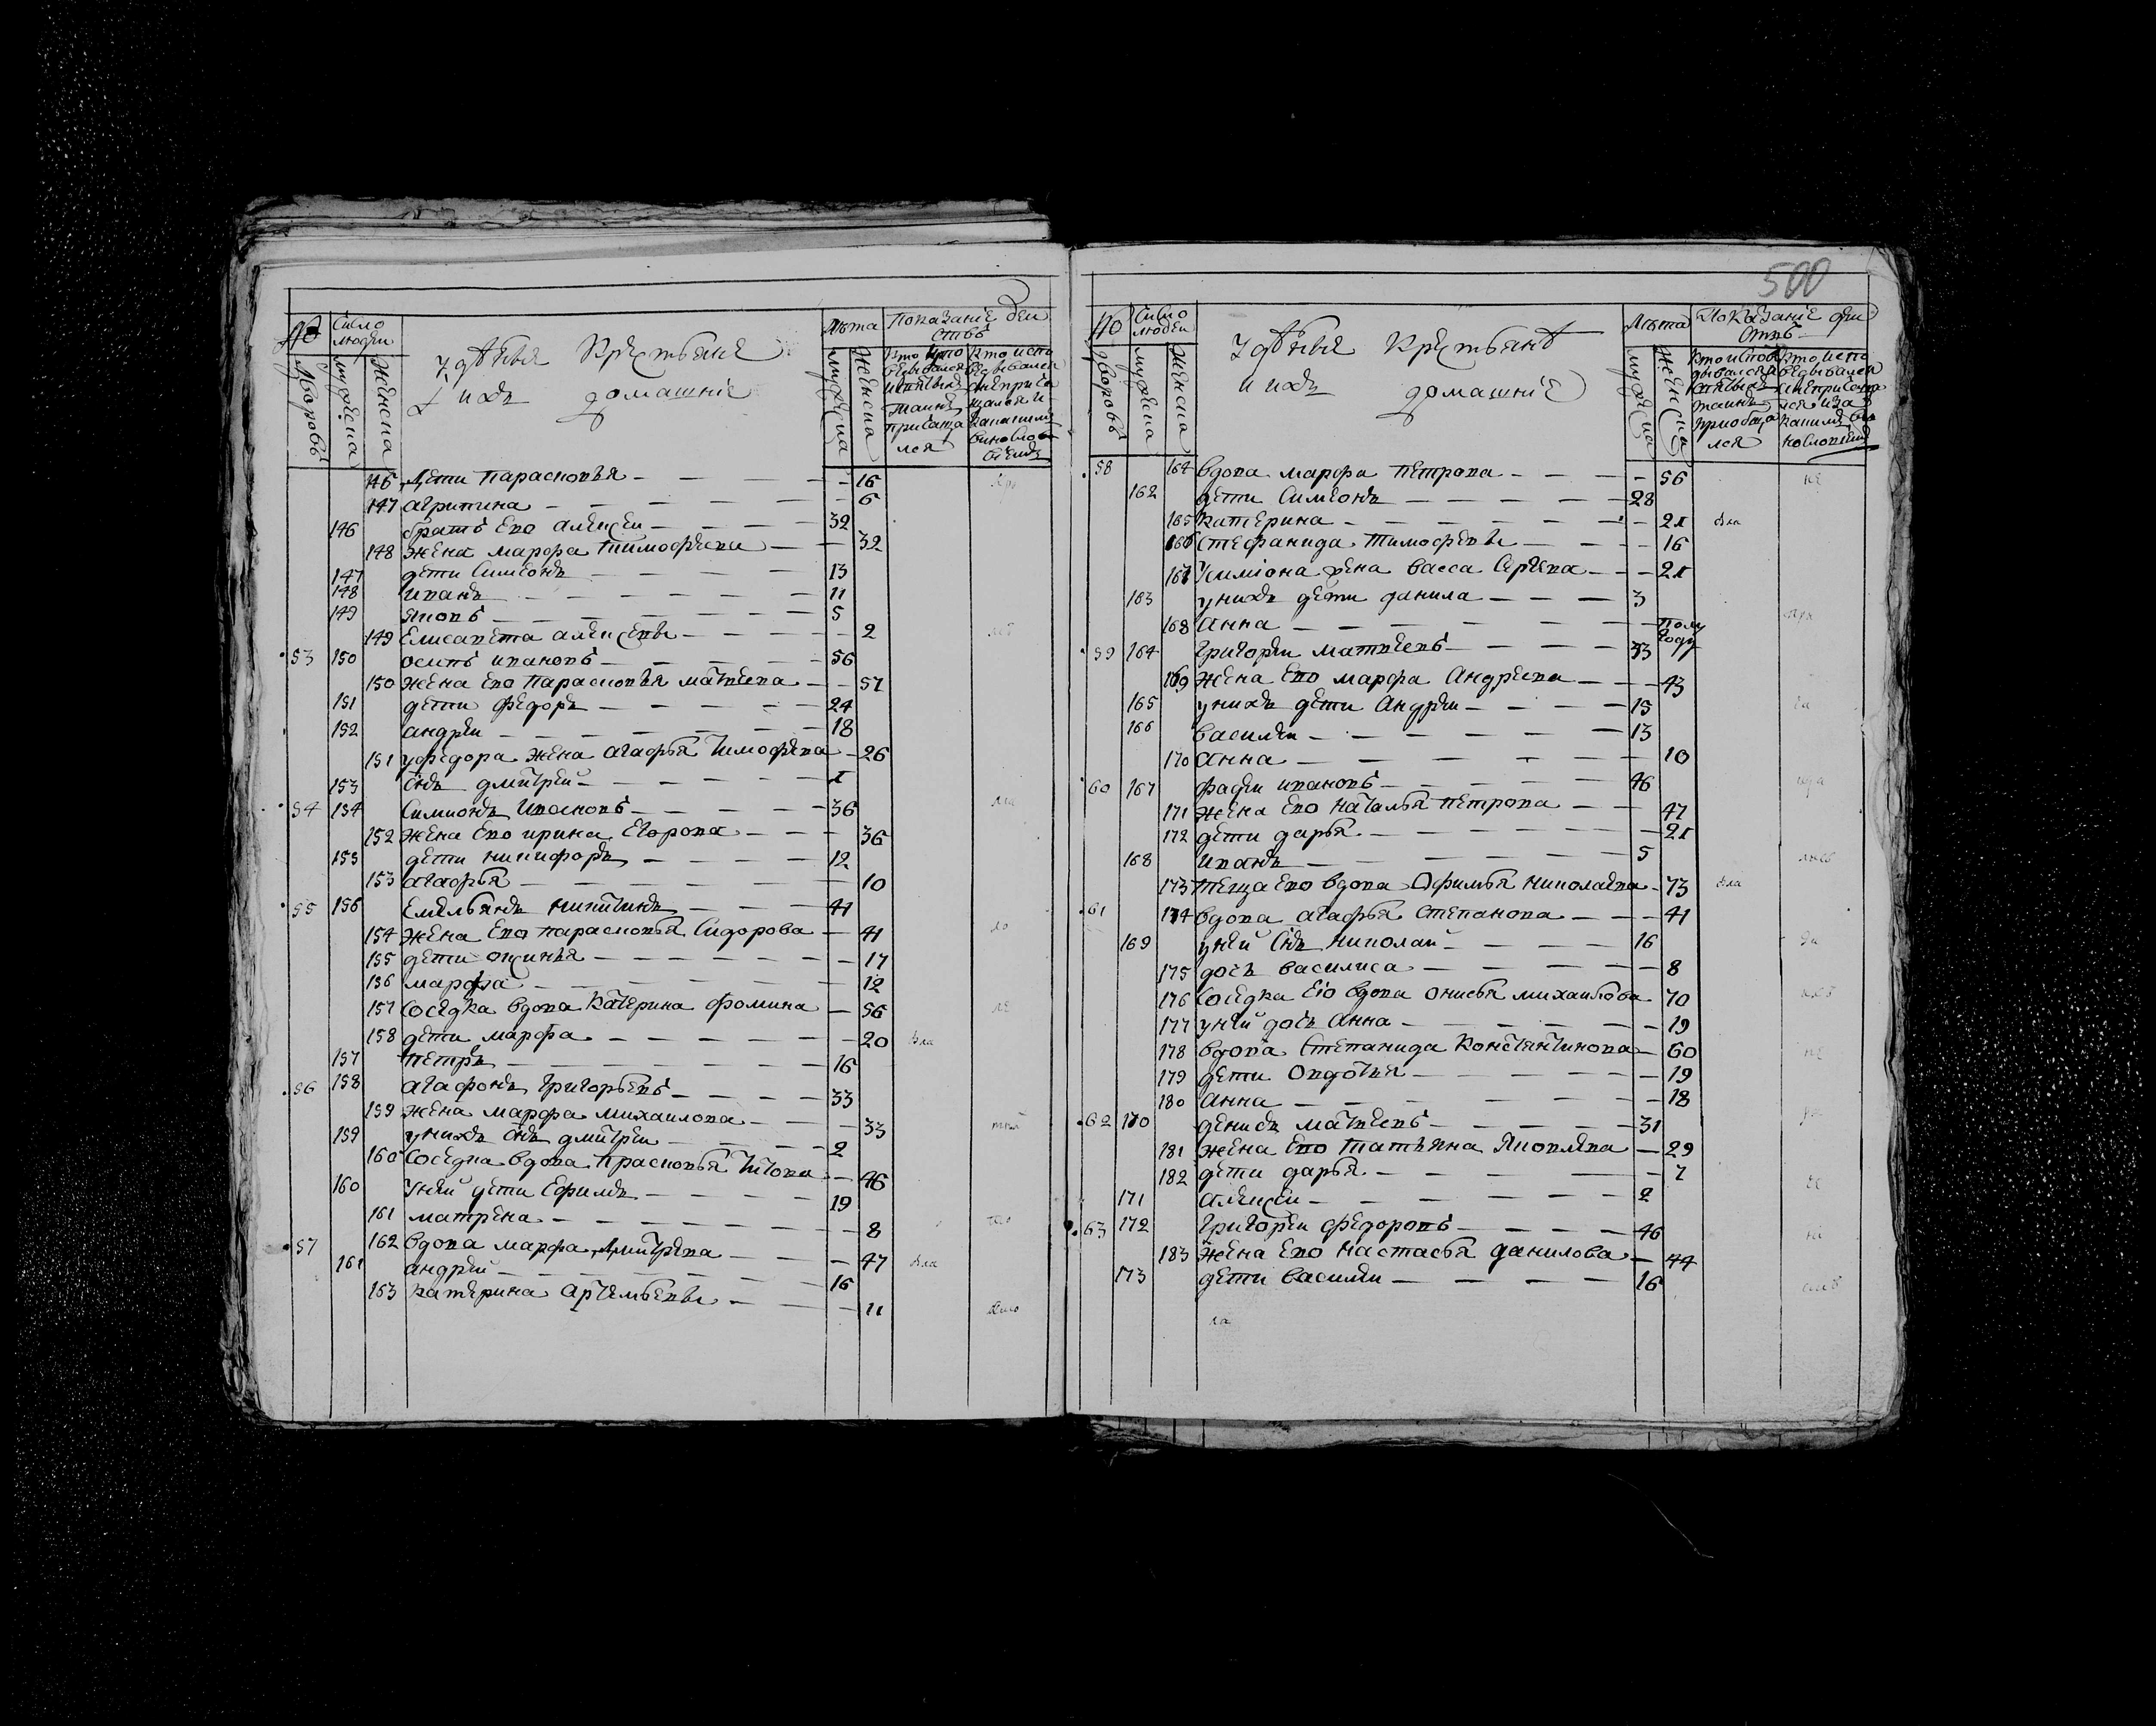 № Число людеи Лѣта Показание деи
ствъ
дворовъ мужеска женска
Удѣльныя Крестьянѣ
и ихъ домашние
мужеска женска
146 Дети Парасковья — 16
147 агрипина — 6
146 братъ Ево алексеи — 32
148 жена марфа тимофѣева — 32
147 дети Симеонъ — 13
148 иванъ — 11
149 яковъ — 5
149 Елисавета алексѣевы — 2
53 150 осипъ ивановъ — 56
150 жена Ево Парасковья матвеева — 57
151 дети федоръ — 24
152 андреи — 18
151 уфедора жена агафья тимофѣева — 26
153 снъ дмитреи — 1
54 154 Симионъ Ивановъ — 36
152 жена Ево ирина Егорова — 36
155 дети никифоръ — 12
153 агафья — 10
55 156 Емельянъ никитинъ — 41
154 жена Ево парасковья Сидорова — 41
155 дети — 17
156 марфа — 12
157 Соседка вдова Катерина фомина — 56
158 дети марфа — 20
157 Петръ — 16
56 158 агафонъ Григорьевъ — 33
159 жена марфа михаилова — 33
159 унихъ снъ дмитреи — 2
160 Соседка вдова Прасковья Титова — 46
160 Унеи дети Ефимъ — 19
161 матрена — 8
57 162 вдова марфа Дмитрева — 47
161 андреи — 16
163 катерина артемьевы — 11
500
№ Число людеи Лѣта Показание деи
ствъ
дворовъ мужеска женска
Удѣльныя Крестьянѣ
и ихъ домашние
мужеска женска
58 164 вдова марфа петрова — 56
162 дети Симеонъ — 28
165 катерина — 21
166 Стефанида Тимофевы — 16
167 Усимиона жена васса Сергева — 21
163 унихъ дети данила — 3
168 Анна — полу
году
59 164 Григореи матвеевъ — 53
169 жена Ево марфа Андреева — 43
165 унихъ дети Андреи — 15
166 василеи — 13
170 анна — 10
60 167 фадеи ивановъ — 46
171 жена Ево наталья петрова — 47
172 дети дарья — 21
168 иванъ — 5
173 теща Ево вдова Офимья николаева — 73
61 174 вдова агафья степанова — 41
169 унеи снъ николаи — 16
175 дочь василиса — 8
176 Соседка Eio вдова онисья михаилова — 70
177 унеи дочь Анна — 19
178 вдова Степанида Константинова — 60
179 дети Овдотья — 19
180 анна — 18
62 170 денисъ матвеевъ — 31
181 жена Ево татьяна Яковлева — 29
182 дети дарья — 7
171 алексеи — 2
63 172 Григореи федоровъ — 46
183 жена Ево настасья данилова — 44
173 дети василеи — 16